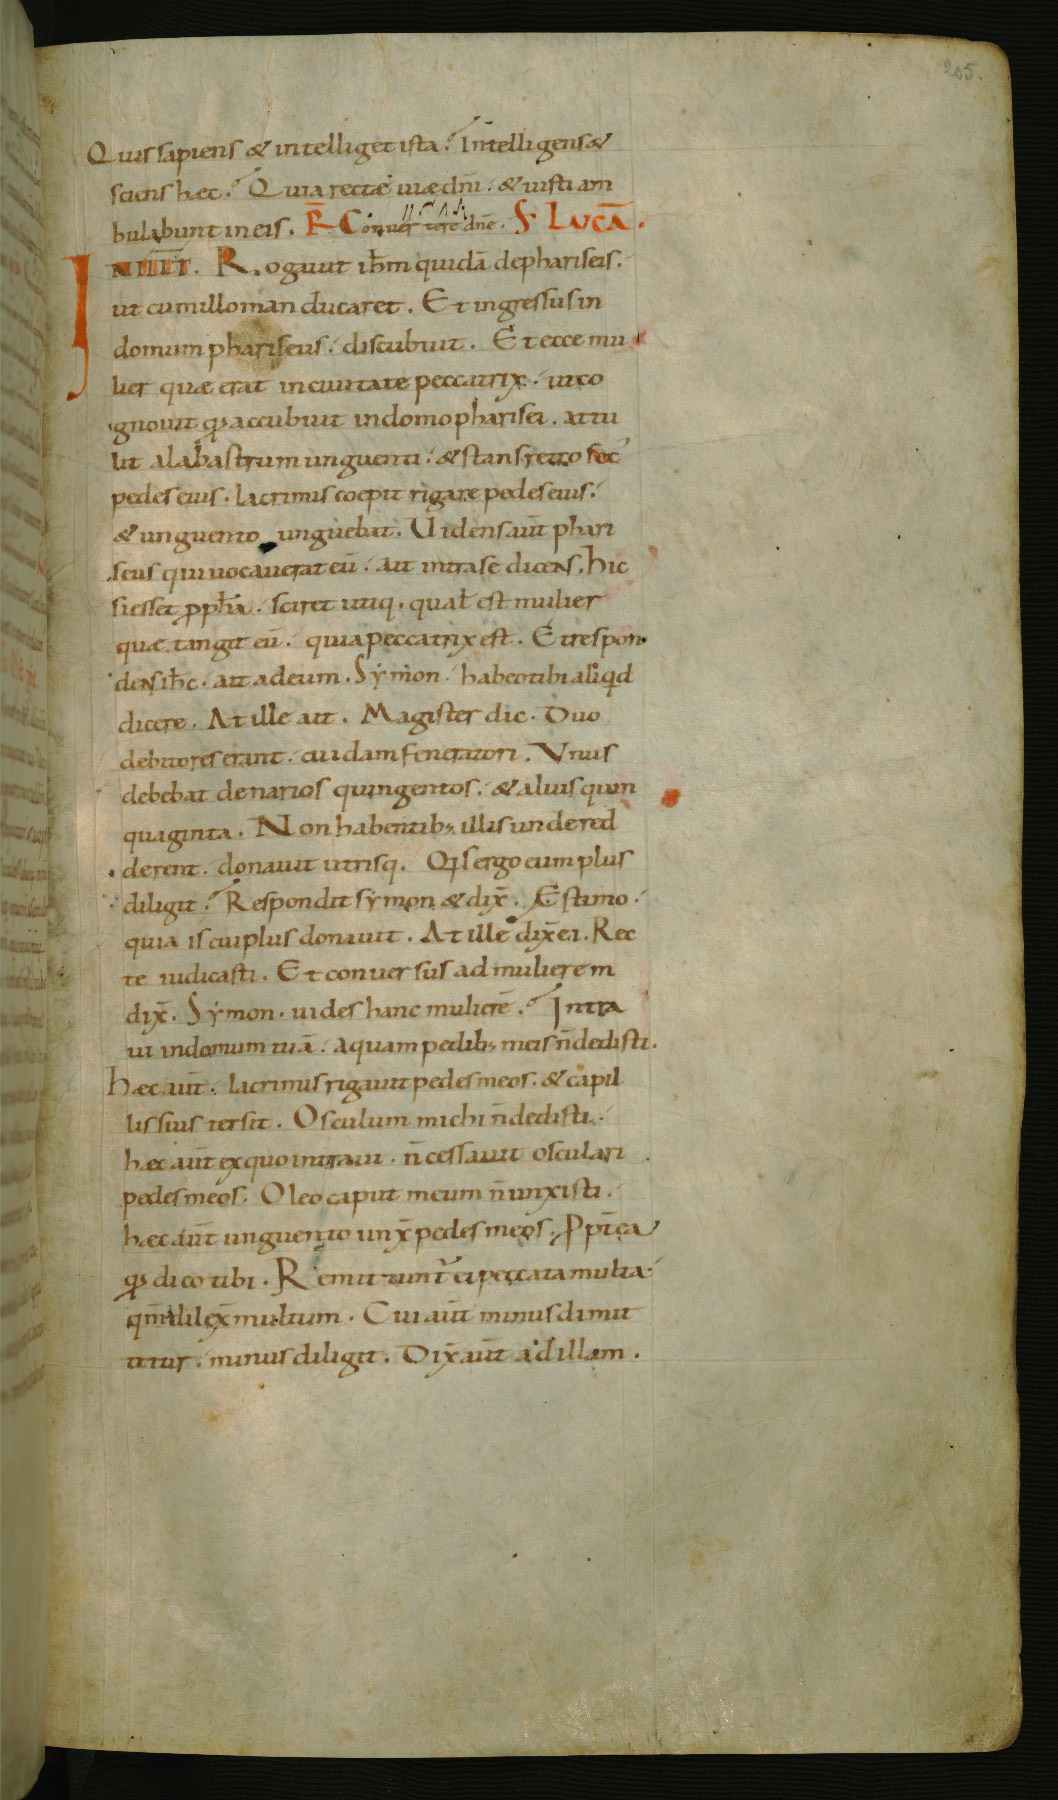 205.
Quis sapiens & intelliget ista? Intelligens &
sciens hæc? Quia rectæ uiæ dn̄i. & iusti am
bulabunt in eis. R̄ Conuertere dn̄e. S. LUCĀ.
IN ILLT̄. Rogauit ih̄m quidā de phariseis.
ut cum illo manducaret. Et ingressus in
domum pharisei. discubuit. Et ecce mu
lier quæ erat in ciuitate peccatrix. ut co
gnouit qd accubuit in domo pharisei. attu
lit alabastrum unguenti. & stans retro sec̄
pedes eius. lacrimis coepit rigare pedes eius.
& unguento unguebat. Uidens aūt phari
seus qui uocauerat eū. ait intra se dicens. hic
si esset ꝓph̄a. sciret utiq. qual̄ est mulier
quæ tangit eū. quia peccatrix est. Et respon
dens ih̄c. ait ad eum. Symon. habeo tibi aliqd
dicere. At ille ait. Magister dic. Duo
debitores erant. cuidam feneratori. Vnus
debebat denarios quingentos. & alius quin
quaginta. Non habentib; illis unde red
derent. donauit utrisq. Qis ergo eum plus
diligit? Respondit symon & dix̄. Æstimo.
quia is cui plus donauit. At ille dix̄ ei. Rec
te iudicasti. Et conuersus ad mulierem
dix̄. Symon. uides hanc mulierē? Intra
ui in domum tuā. aquam pedib; meis n̄ dedisti.
Hæc aūt. lacrimis rigauit pedes meos. & capil
lis suis tersit. Osculum michi n̄ dedisti.
hæc aūt ex quo intraui. n̄ cessauit osculari
pedes meos. Oleo caput meum n̄ unxisti.
hæc aūt unguento unx̄ pedes meos. Ꝓpt̄ea
qd dico tibi. Remittunt̄ ei peccata multa.
qm̄ dilex̄ multum. Cui aūt minus dimit
titur. minus diligit. Dix̄ aūt ad illam.